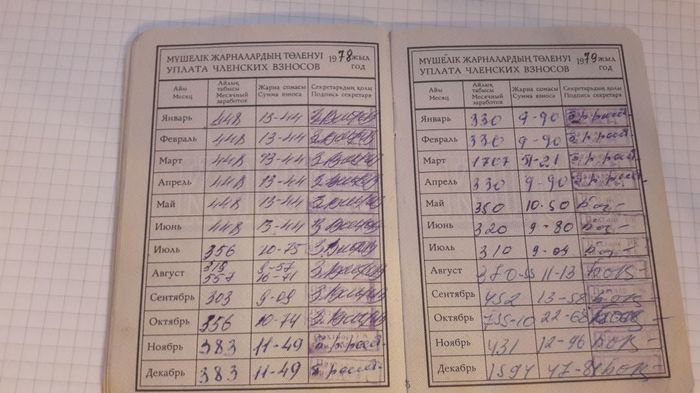 МҮШЕЛІК ЖАРНАЛАРДЫҢ ТӨЛЕНУІ 1978 ЖЫЛ
УПЛАТА ЧЛЕНСКИХ ВЗНОСОВ ГОД
Айы Месяц Айлық табысы Месячный заработок Жарна сомасы Сумма взноса Секретарьдың қолы Подпись секретаря
Январь 448 13-44
Февраль 448 13-44
Март 448 13-44
Апрель 448 13-44
Май 448 13-44
Июнь 448 13-44
Июль 356 10-75
Август 319 9-57
557 16-71
Сентябрь 303 9-09
Октябрь 356 10-74
Ноябрь 383 11-49
Декабрь 383 11-49
МҮШЕЛІК ЖАРНАЛАРДЫҢ ТӨЛЕНУІ 1979 ЖЫЛ
УПЛАТА ЧЛЕНСКИХ ВЗНОСОВ ГОД
Айы Месяц Айлық табысы Месячный заработок Жарна сомасы Сумма взноса Секретарьдың қолы Подпись секретаря
Январь 330 9-90
Февраль 330 9-90
Март 1707 51-21
Апрель 330 9-90
Май 350 10-50
Июнь 320 9-80
Июль 310 9-09
Август 370-95 11-13
Сентябрь 452 13-58
Октябрь 755-10 22-68
Ноябрь 431 12-96
Декабрь 1594 47-81